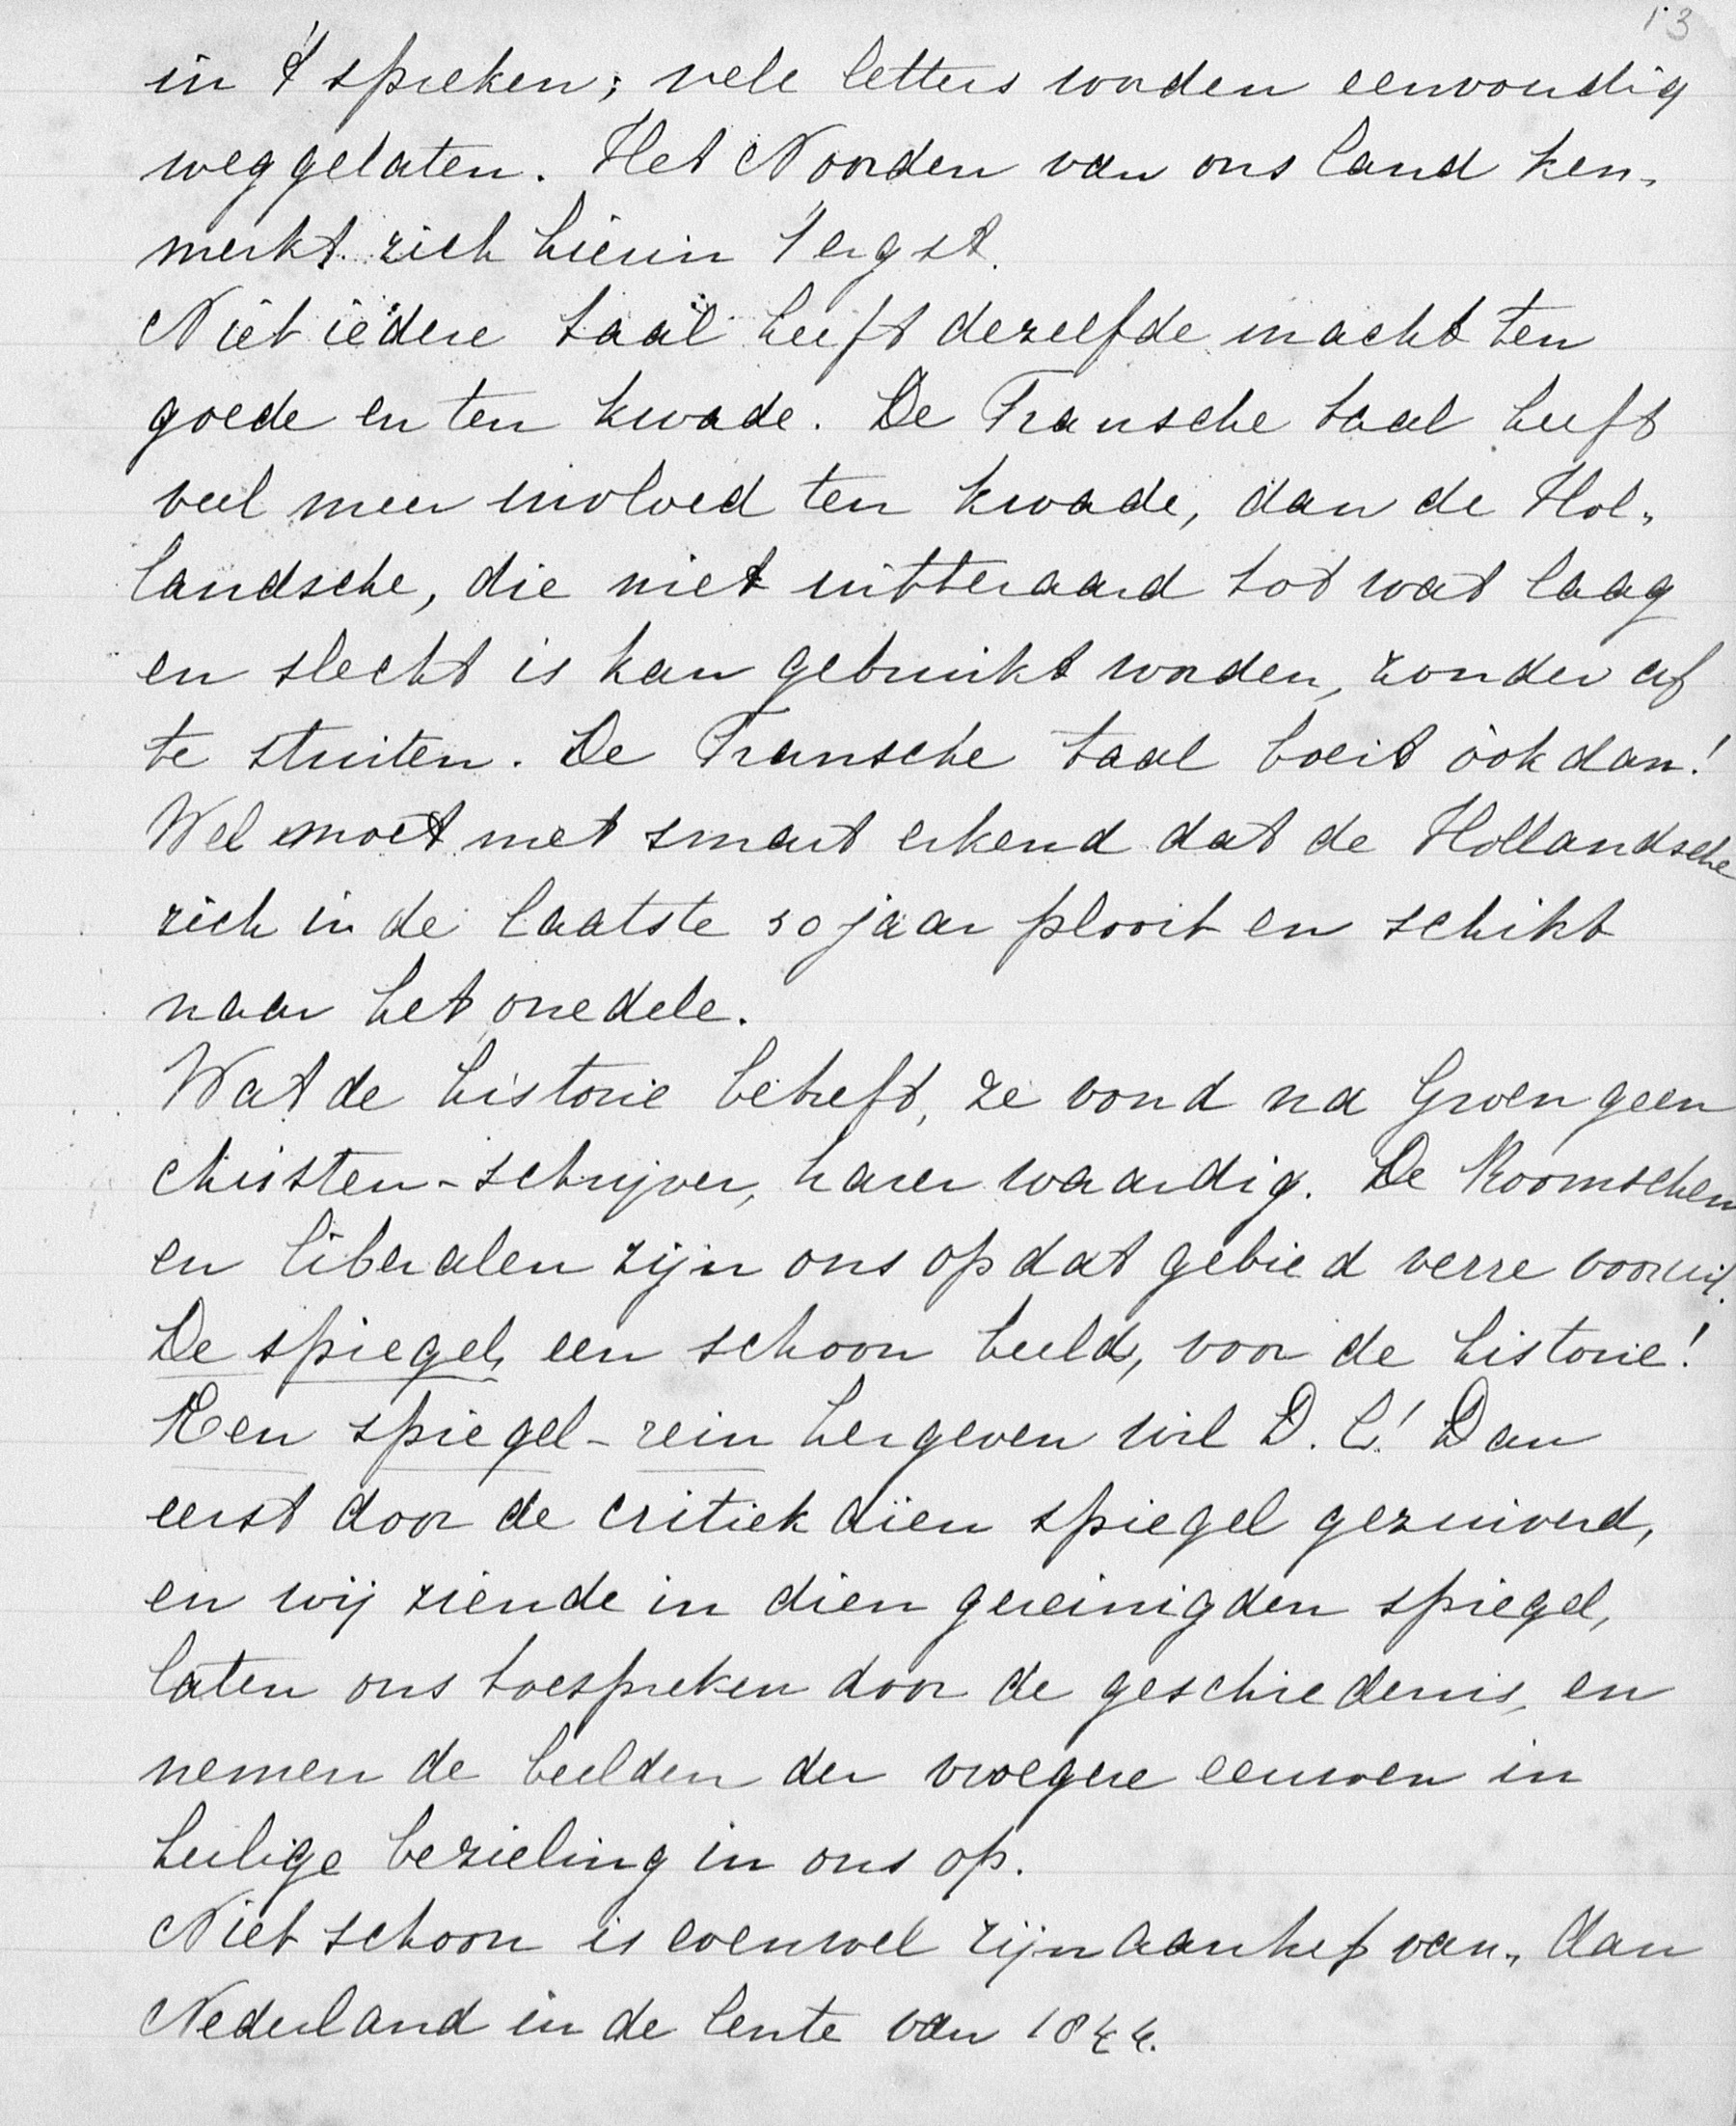 13
in 't spreken; vele letters worden eenvoudig
weggelaten. Het Noorden van ons land ken-
merkt zich hierin 't ergst.
Niet iedere taal heeft dezelfde macht ten
goede en ten kwade. De Fransche taal heeft
veel meer invloed ten kwade, dan de Hol-
landsche, die niet uitteraard tot wat laag
en slecht is kan gebruikt worden, zonder af
te stuiten. De Fransche taal boeit òok dan!
Wel moet met smart erkend dat de Hollandsche
zich in de laatste 30 jaar plooit en schikt
naar het onedele.
Wat de historie betreft, ze vond na Groen geen
christen-schrijver, harer waardig. De Roomschen
en liberalen zijn ons op dat gebied verre vooruit.
De spiegel, een schoon beeld, voor de historie!
Een spiegel-rein hergeven wil D. C.! Dan
eerst door de critiek dien spiegel gezuiverd,
en wij ziende in dien gereinigden spiegel,
laten ons toespreken door de geschiedenis, en
nemen de beelden der vroegere eeuwen in
heilige bezieling in ons op.
Niet schoon is evenwel zijn aanhef van „Aan
Nederland in de lente van 1844.